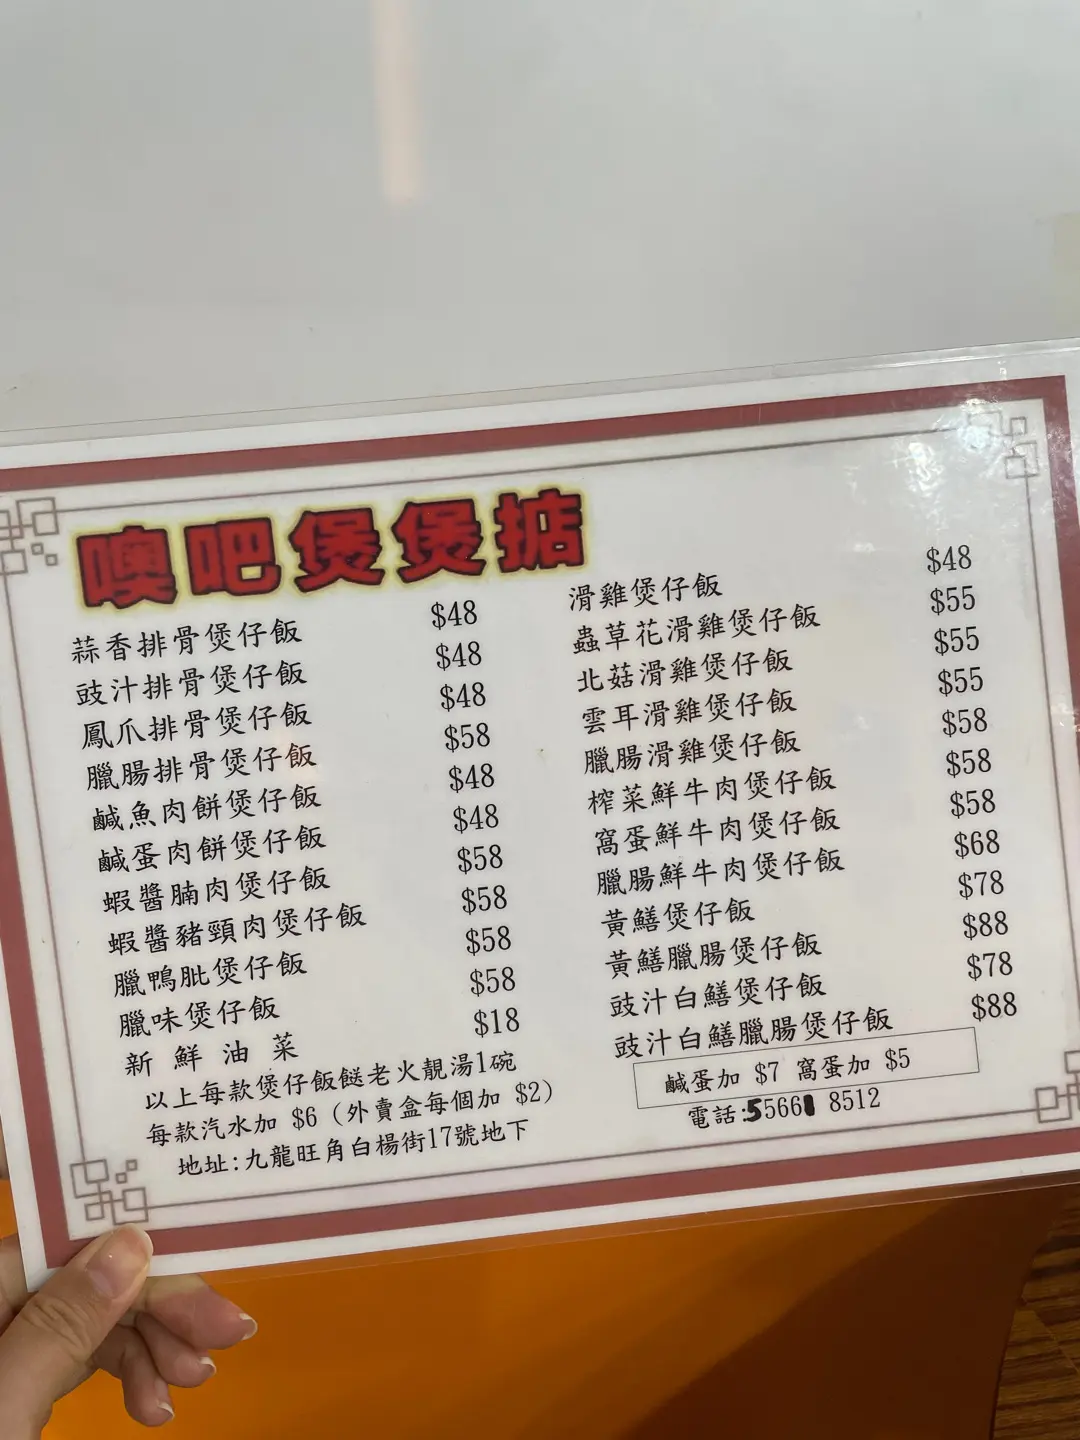 噢吧煲煲掂
蒜香排骨煲仔飯 $48
豉汁排骨煲仔飯 $48
鳳爪排骨煲仔飯 $48
臘腸排骨煲仔飯 $58
鹹魚肉餅煲仔飯 $48
鹹蛋肉餅煲仔飯 $48
蝦醬腩肉煲仔飯 $58
蝦醬豬頸肉煲仔飯 $58
臘鴨肶煲仔飯 $58
臘味煲仔飯 $58
新鮮油菜 $18
以上每款煲仔飯餸老火靚湯1碗
每款汽水加 $6 (外賣盒每個加 $2)
地址:九龍旺角白楊街17號地下
滑雞煲仔飯 $48
蟲草花滑雞煲仔飯 $55
北菇滑雞煲仔飯 $55
雲耳滑雞煲仔飯 $55
臘腸滑雞煲仔飯 $58
榨菜鮮牛肉煲仔飯 $58
窩蛋鮮牛肉煲仔飯 $58
臘腸鮮牛肉煲仔飯 $68
黃鱔煲仔飯 $78
黃鱔臘腸煲仔飯 $88
豉汁白鱔煲仔飯 $78
豉汁白鱔臘腸煲仔飯 $88
鹹蛋加 $7 窩蛋加 $5
電話:5566 8512